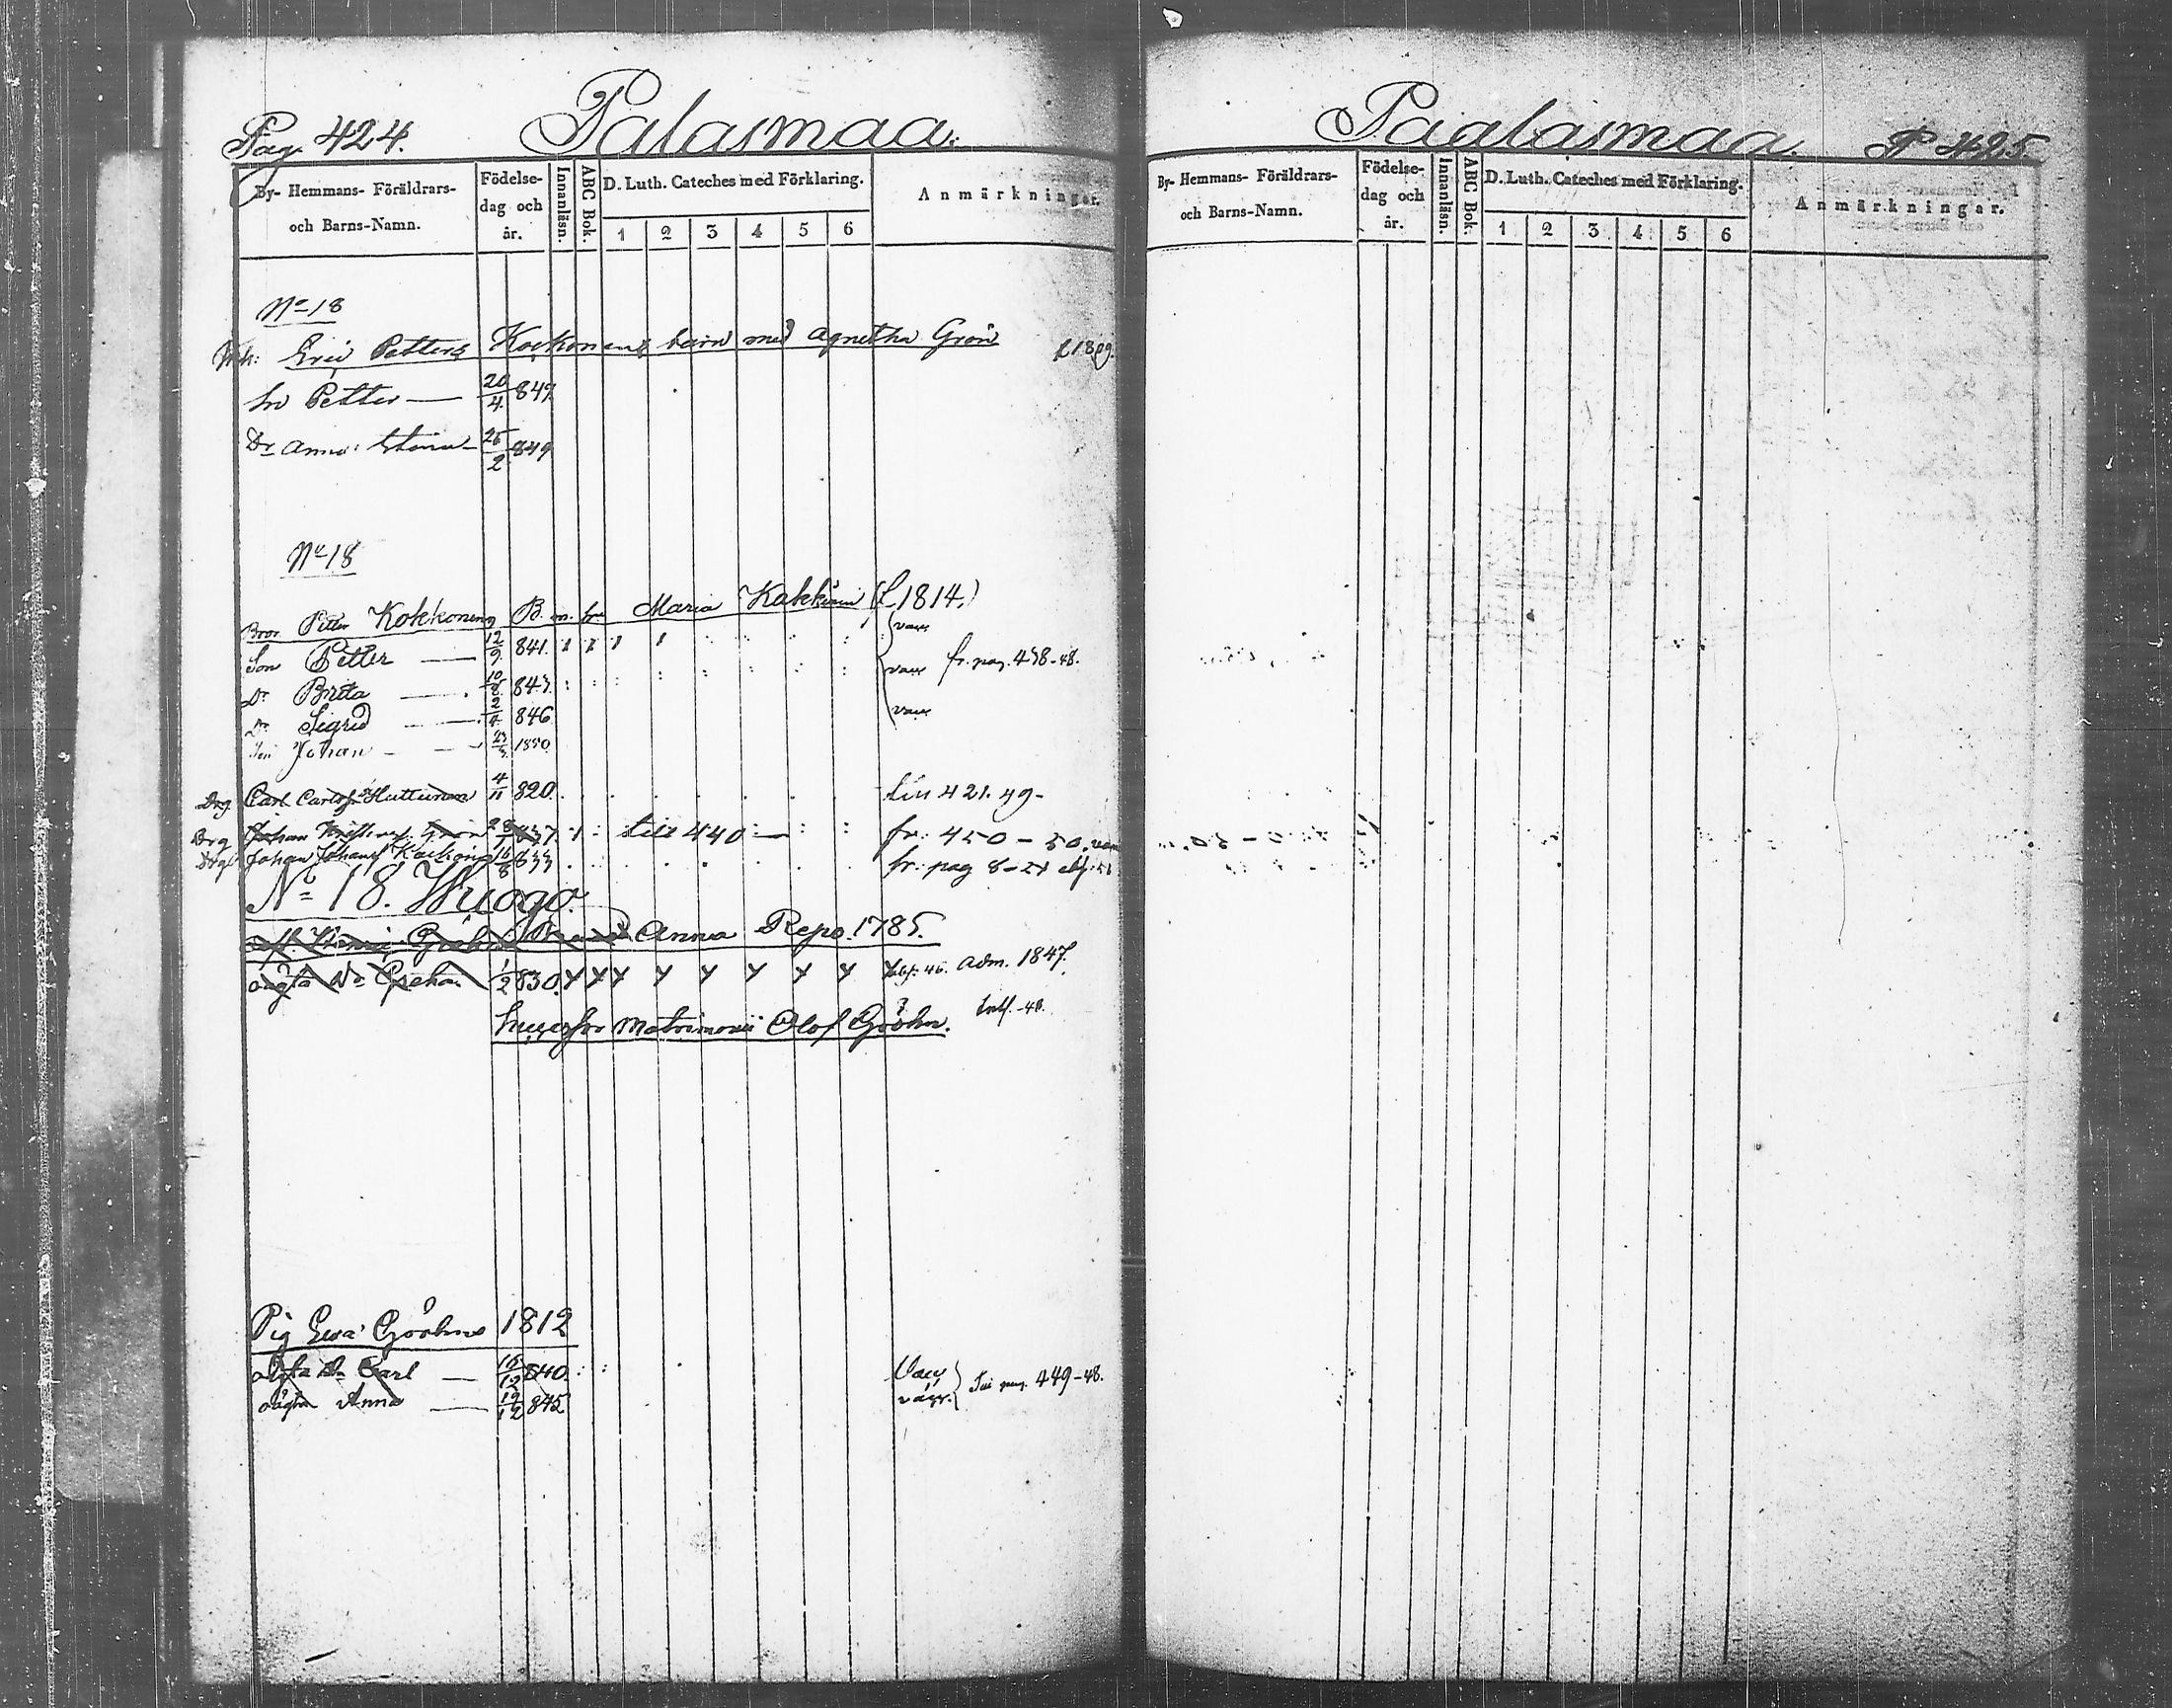 Pag. 424. Palasmaa.
By- Hemmans- Föräldrars- och Barns-Namn.
Födelse- dag och år.
Innanläsn.
ABC Bok.
D. Luth. Cateches med Förklaring.
1 2 3 4 5 6
Anmärkningar.
No 18
Eric Petters Kockonens barn med Agnetha Grön
Petter — 20/4 847
Dr Anna Stina — 25/2 849
No 18
Petter Kokkonen B. m. Maria Kakkinen (f. 1814.)
Son Petter — 12/9 841. vacc
Dr Brita — 10/8 843. vacc fr. pag. 438-48.
Dr Sigrid — 2/4 846 vacc
Johan — 23/3 1850.
Drg Carl Carlss. Huttunen 4/11 820. till 421. 49-
Drg Johan Grön 837. till 440 — fr: 450 - 50.
Johan Johans 16/8 833 fr. pag 8-
No 18. Wuogo.
Anna Repo. 1785.
oägta Dr 1/2 830. adm. 1847.
Matrimonii Olof Gröhn.
Pig Ewa Gröhn 1812
oägta Carl — 16/12 840. Vacc
oägta Anna — 19/12 845 vacc. pag. 449-48.
Paalasmaa. P 425.
By- Hemmans- Föräldrars- och Barns-Namn.
Födelse- dag och år.
Innanläsn.
ABC Bok.
D. Luth. Cateches med Förklaring.
1 2 3 4 5 6
Anmärkningar.